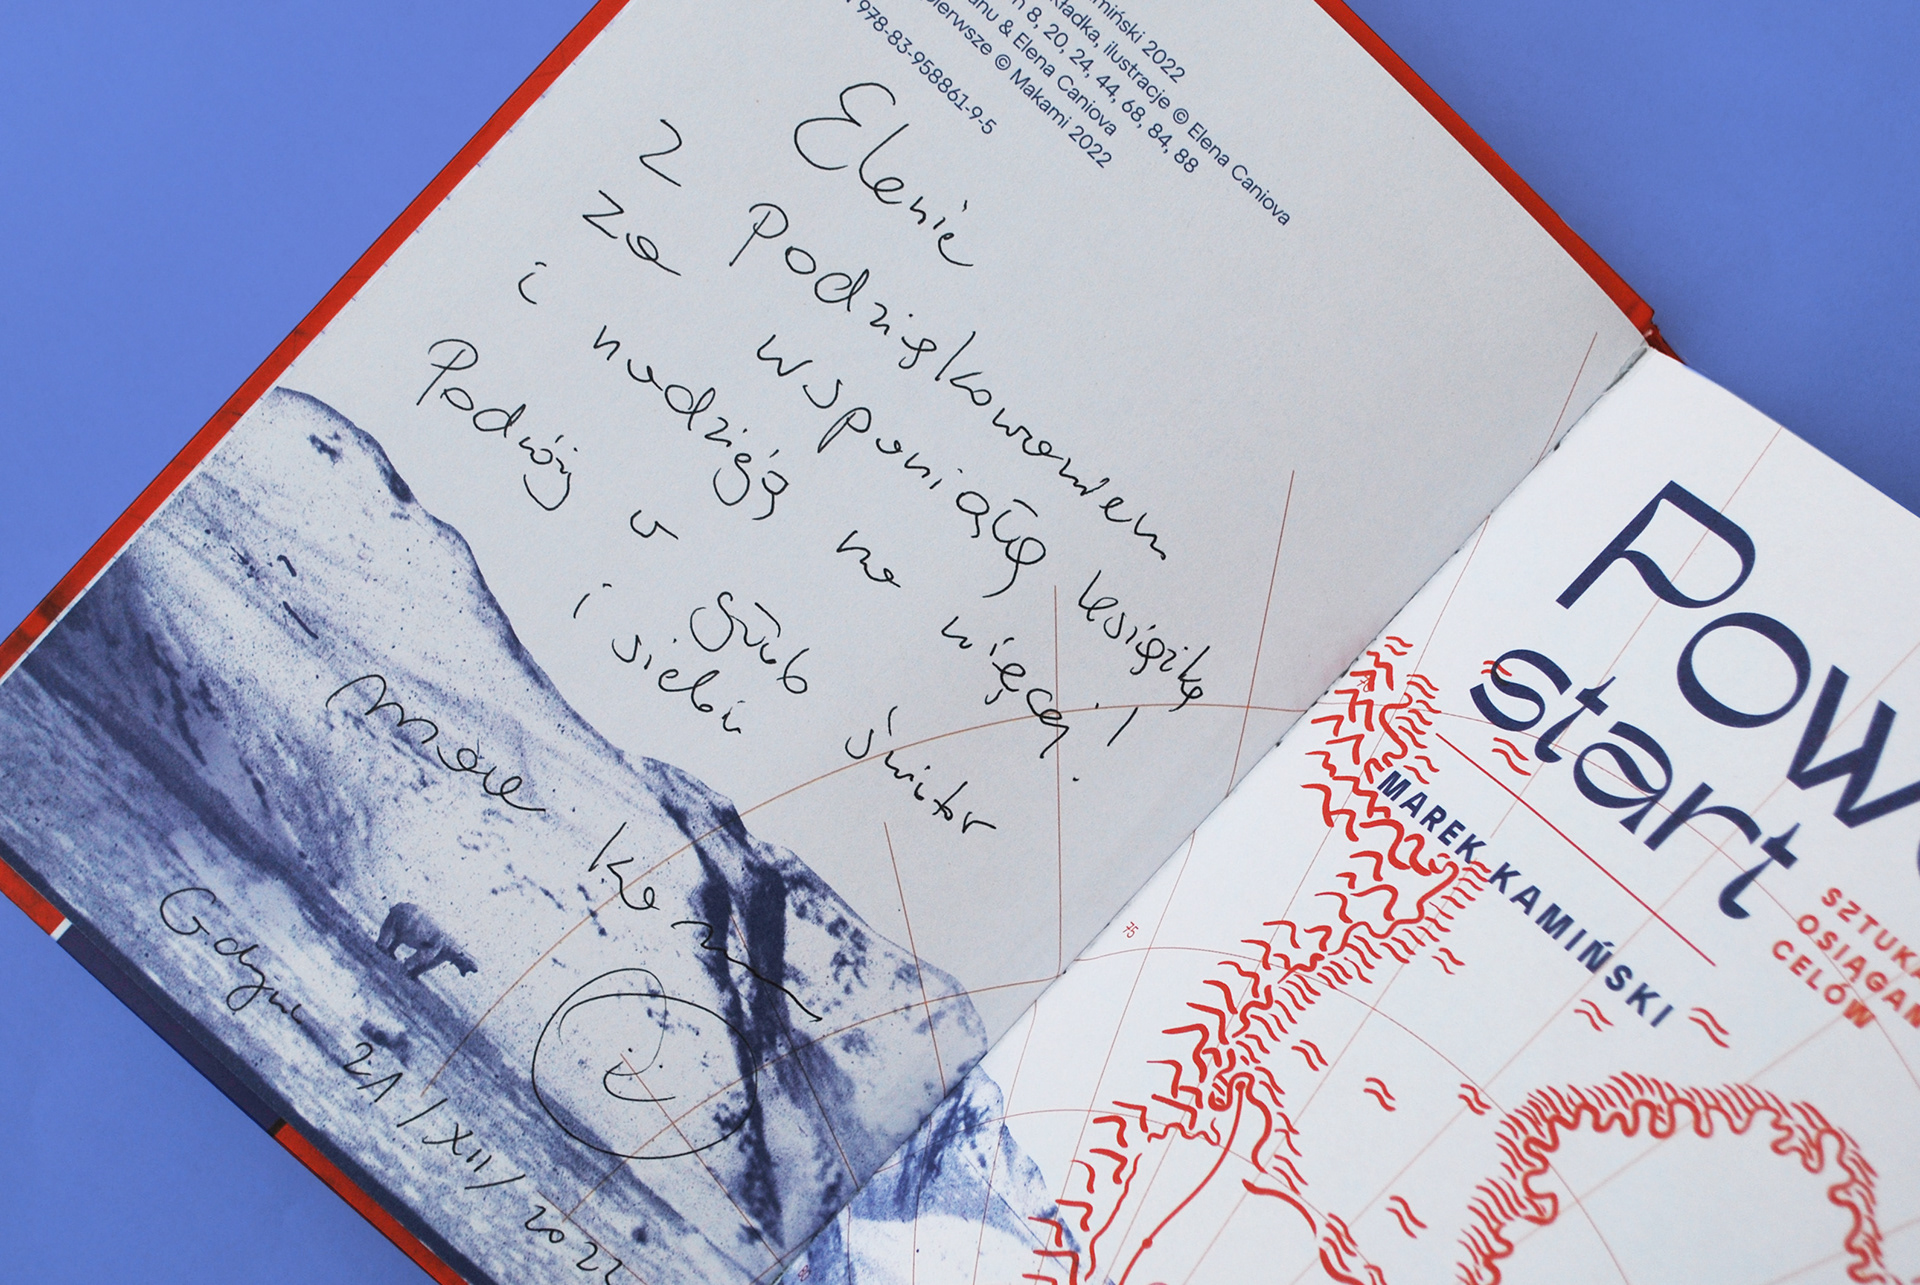 miński 2022
kładka, ilustracje © Elena Caniova
8, 20, 24, 44, 68, 84, 88
anu & Elena Caniova
pierwsze © Makami 2022
978-83-958861-9-5
Elenie
Z Podziękowaniem
za wspaniałą książkę
i nadzieją na więcej!
Podróży w głąb świata
i siebie
Marek Kam
Gdynia 21/XII/2022
75
80
Pow
start
MAREK KAMIŃSKI
SZTUKA
OSIĄGAN
CELÓW